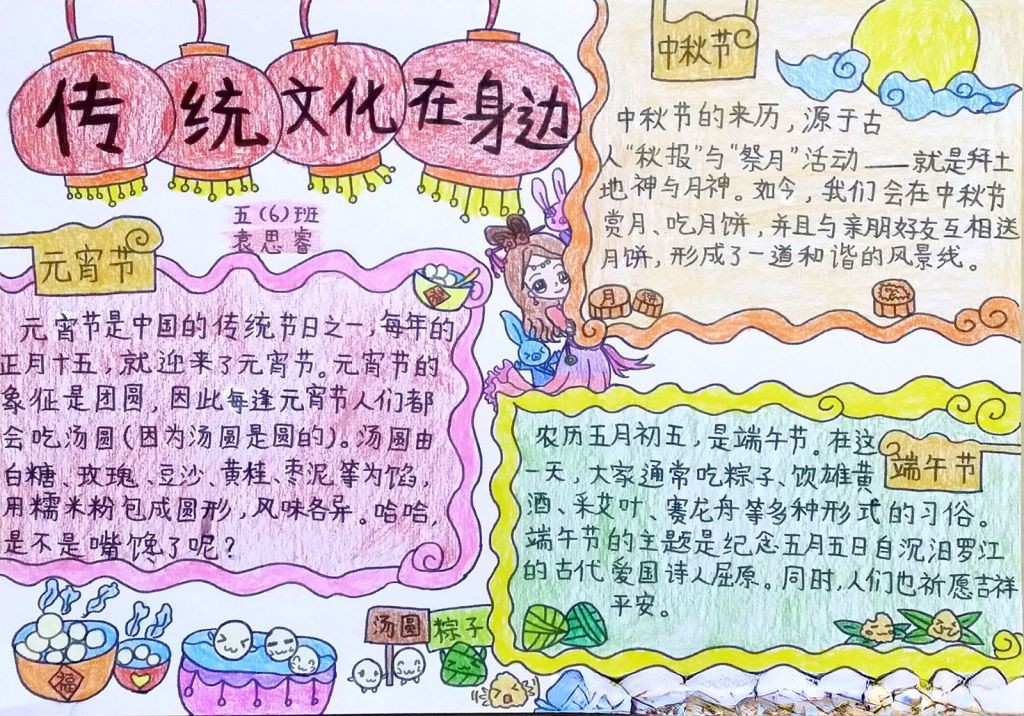 传统文化在身边
五(6)班
袁思睿
元宵节
元宵节是中国的传统节日之一,每年的
正月十五,就迎来了元宵节。元宵节的
象征是团圆,因此每逢元宵节人们都
会吃汤圆(因为汤圆是圆的)。汤圆由
白糖、玫瑰、豆沙、黄桂、枣泥等为馅,
用糯米粉包成圆形,风味各异。哈哈,
是不是嘴馋了呢?
中秋节
中秋节的来历,源于古
人“秋报”与“祭月”活动——就是拜土
地神与月神。如今,我们会在中秋节
赏月、吃月饼,并且与亲朋好友互相送
月饼,形成了一道和谐的风景线。
月
饼
端午节
农历五月初五,是端午节。在这
一天,大家通常吃粽子、饮雄黄
酒、采艾叶、赛龙舟等多种形式的习俗。
端午节的主题是纪念五月五日自沉汨罗江
的古代爱国诗人屈原。同时,人们也祈愿吉祥
平安。
福
汤圆
粽子